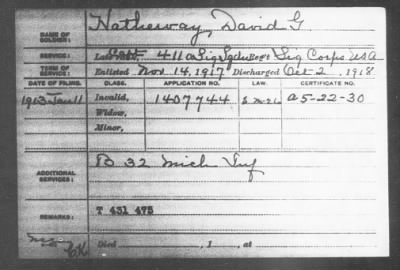 NAME OF SOLDIER: Hatheway, David G
SERVICE: Late 411 Sig Corps USA
TERM OF SERVICE: Enlisted Nov 14, 1917 Discharged Oct 2, 1918
DATE OF FILING. CLASS. APPLICATION NO. LAW. CERTIFICATE NO.
Jan 11 Invalid, 1407744 A5-22-30
Widow,
Minor,
ADDITIONAL SERVICES: B 32 Mich Inf
REMARKS: T 431 475
Died , 1 , at